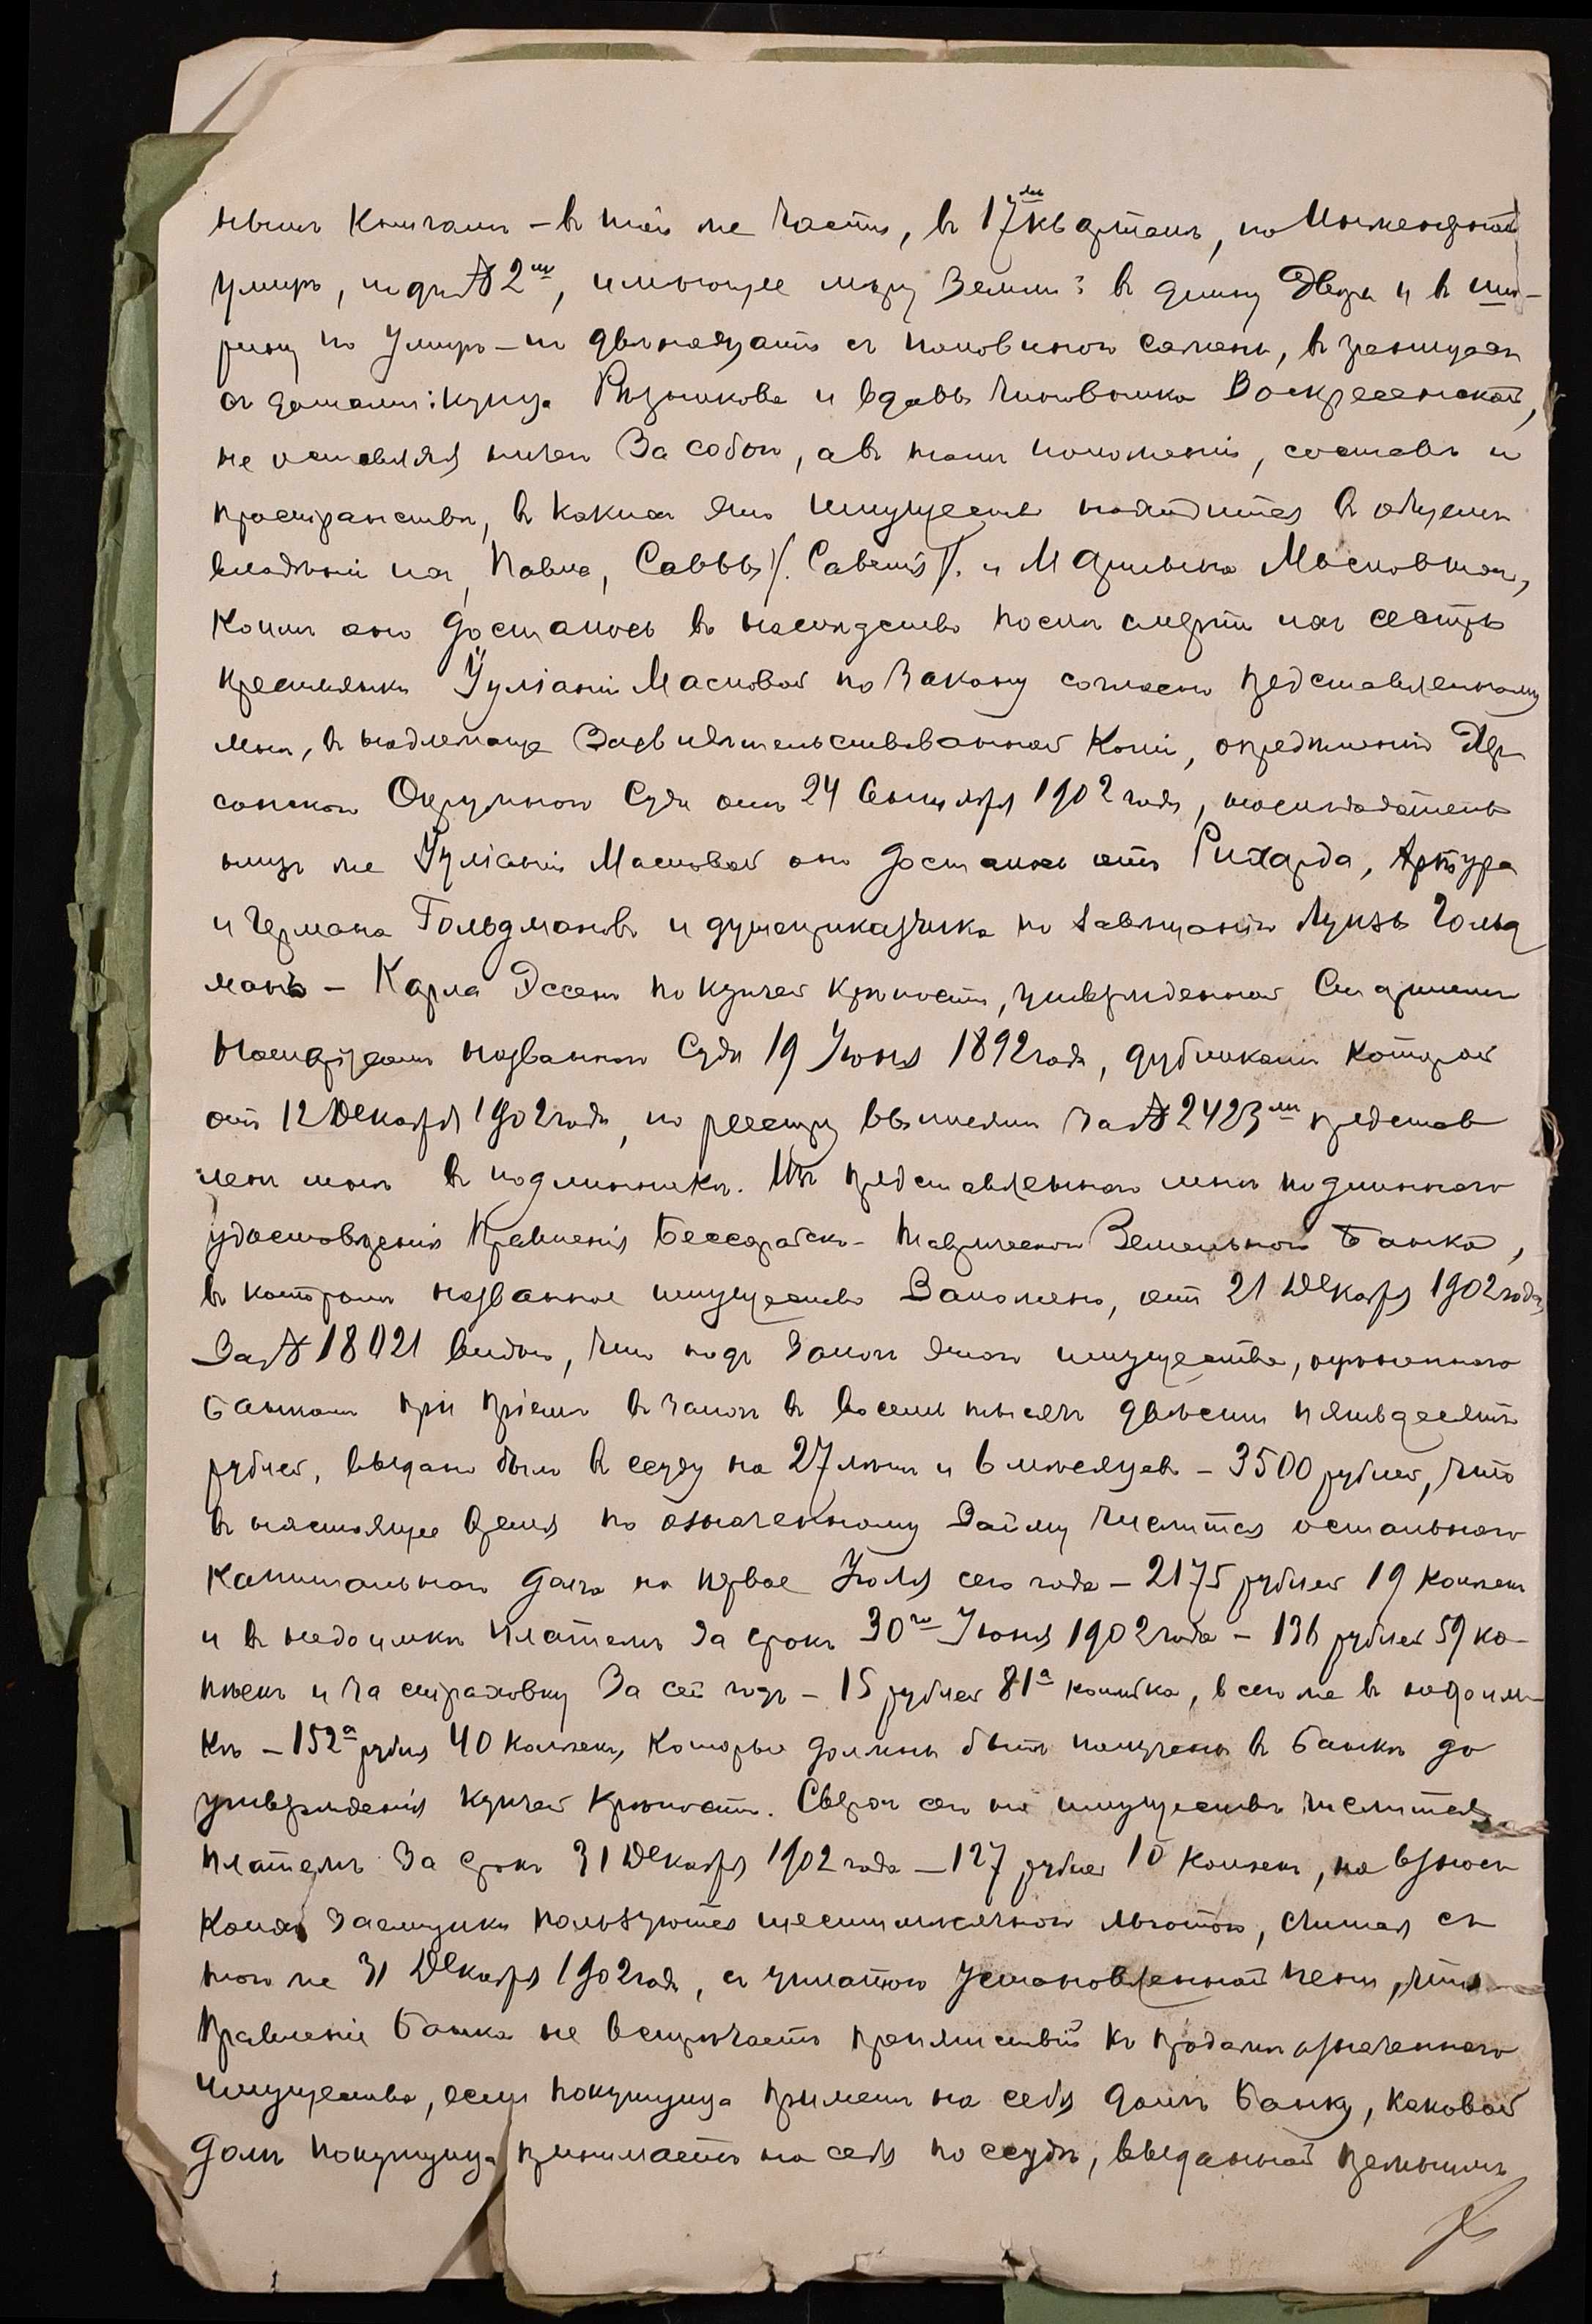 нымъ книгамъ – въ той же части, въ 17мъ кварталѣ, по Инженерной
улицѣ, подъ № 2мъ, имѣющее мѣру земли: въ длину двора и въ ши-
рину по улицѣ – по двѣнадцати съ половиною сажень, въ границахъ
съ домами: купца и вдовы чиновника Воскресенской,
не оставляя ничего за собою, а въ томъ положеніи, составѣ и
пространствѣ, въ какихъ это имущество находится въ общемъ
владѣніи ихъ, Павла, Саввы /. Савелія /. и Мосновыхъ,
коимъ оно досталось въ наслѣдство послѣ смерти ихъ сестры
крестьянки Іуліаніи Масновой по закону согласно представленному
мнѣ, въ надлежаще засвидѣтельствованной копіи, опредѣленію Хер
сонскаго Окружнаго Суда отъ 24 Сентября 1902 года, наслѣдодатель
ницѣ же Іуліаніи Масновой оно досталось отъ Рихарда, Артура
и Германа Гольдмановъ и душеприказчика по завѣщанію Луизы Гольд
манъ – Карла Эссена по купчей крѣпости, утвержденной Старшимъ
Нотаріусомъ названнаго Суда 19 Іюня 1892 года, дубликатъ которой
отъ 12 Декабря 1902 года, по реестру выписей за № 2423мъ представ
ленъ мнѣ въ подлинникѣ. Изъ представленнаго мнѣ подлиннаго
удостовѣренія Правленія Бессарабско-Таврическаго Земельнаго Банка,
въ которомъ названное имущество заложено, отъ 21 Декабря 1902 года
за № 18021 видно, что подъ залогъ этого имущества, оцѣненнаго
банкомъ при пріемѣ въ залогъ въ восемь тысячъ двѣсти пятьдесятъ
рублей, выдано было въ ссуду на 27 лѣтъ и 6 мѣсяцевъ – 3500 рублей, что
въ настоящее время по означенному займу числится остальнаго
капитальнаго долга на первое Іюля сего года – 2175 рублей 19 копѣекъ
и въ недоимкѣ платежъ за срокъ 30го Іюня 1902 года – 136 рублей 59 ко-
пѣекъ и за страховку за сей годъ – 15 рублей 81а копѣйка, всего же въ недоим-
кѣ – 152а рубля 40 копѣекъ, которые должны быть получены въ банкѣ до
утвержденія купчей крѣпости. Сверхъ сего на имуществѣ числится
платежъ за срокъ 31 Декабря 1902 года – 127 рублей 10 копѣекъ, на взносъ
коихъ заемщики пользуются шестимѣсячною льготою, считая съ
того же 31 Декабря 1902 года, съ уплатою установленной пени, что
Правленіе банка не встрѣчаетъ препятствій къ продажѣ означеннаго
имущества, если покупщица приметъ на себя долгъ банку, каковой
долгъ покупщица принимаетъ на себя по ссудѣ, выданной прежнимъ